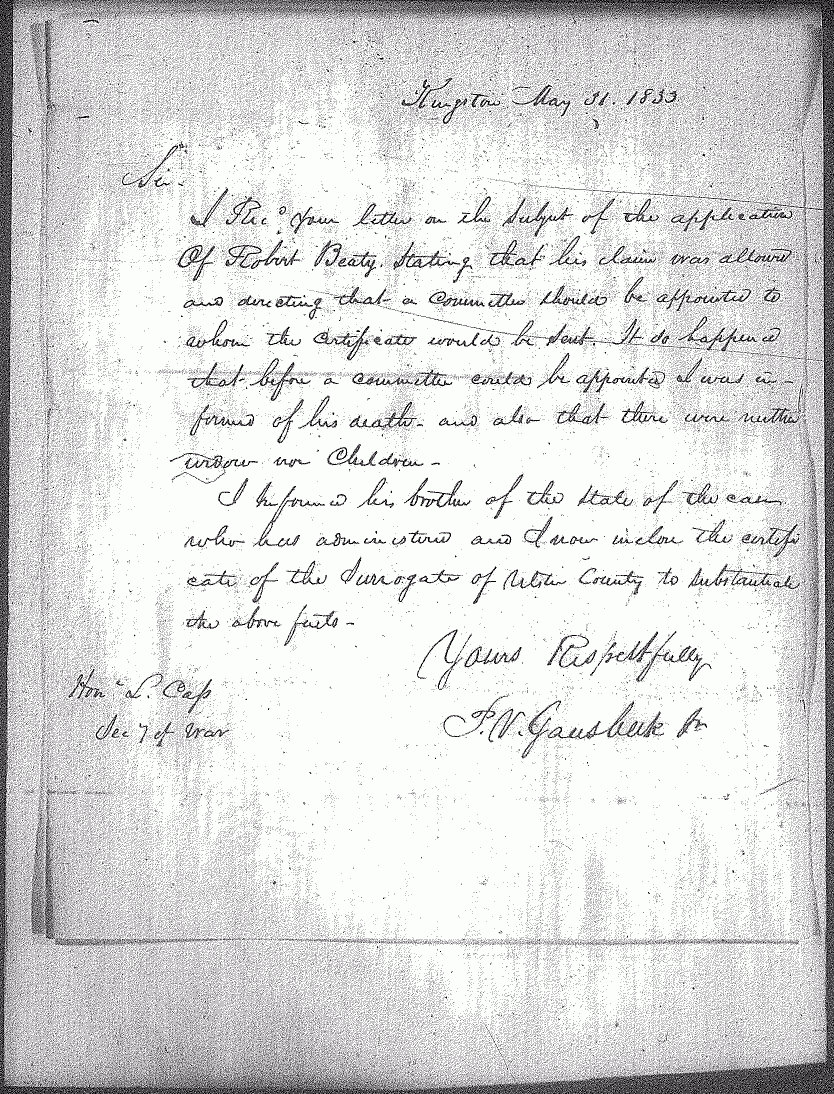 Kingston May 31. 1833
Sir.
I Recd your letter on the Subject of the application
Of Robert Beaty. Stating that his claim was allowed
and directing that a Committee should be appointed to
whom the Certificate would be sent. It so happened
that before a committee could be appointed I was in-
formed of his death - and also that there were neither
widow nor Children -
I Informed his brother of the state of the case
who has administered and I now inclose the certifi
cate of the Surrogate of Ulster County to substantiate
the above facts -
Yours Respectfully
Honl L. Cass
Secy of War
F. V. Gausbeek Jr